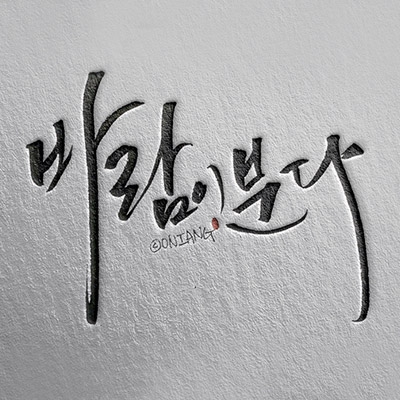 바람이 분다
©ONIANG